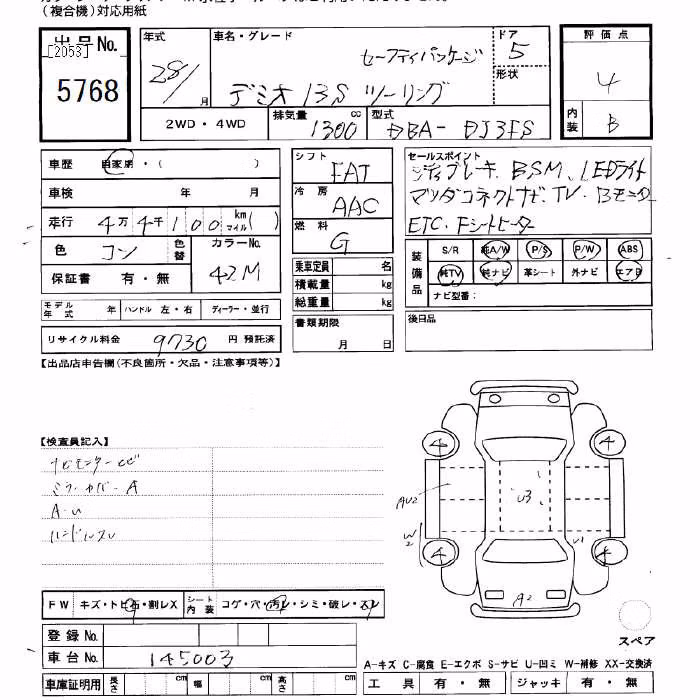 (複合機)対応用紙
出品No.
[2053]
5768
年式
28/
月
車名・グレード
セーフティパッケージ
デミオ 13S ツーリング
ドア
5
形状
評価点
4
内装
B
2WD・4WD
排気量
1300
cc
型式
DBA- DJ3FS
車歴
自家用・( )
車検 年 月
走行 4万4千100 km マイル( )
色 コン 色替
カラーNo.
42M
保証書 有・無
モデル年式 年 ハンドル 左・右 ディーラー・並行
リサイクル料金 9730 円 預託済
シフト
FAT
冷房
AAC
燃料
G
乗車定員 名
積載量 kg
総重量 kg
書類期限
月 日
セールスポイント
シティブレーキ、BSM、LEDライト
マツダコネクトナビ、TV、Bモニター
ETC・Fシートヒーター
装備品
S/R 純A/W P/S P/W ABS
純TV 純ナビ 革シート 外ナビ エアB
ナビ型番:
後日品
【出品店申告欄(不良箇所・欠品・注意事項等)】
【検査員記入】
ナビモニターヒビ
ミラーカバーA
A・U
ハンドルスレ
4
4
AU2
U3
W2
U1
4
4
A2
スペア
FW キズ・トビ石・割レX
シート内装 コゲ・穴・汚レ・シミ・破レ・スレ
登録No.
車台No. 145003
車庫証明用 長さ cm 幅 cm 高さ cm
A-キズ C-腐食 E-エクボ S-サビ U-凹ミ W-補修 XX-交換済
工具 有・無 ジャッキ 有・無